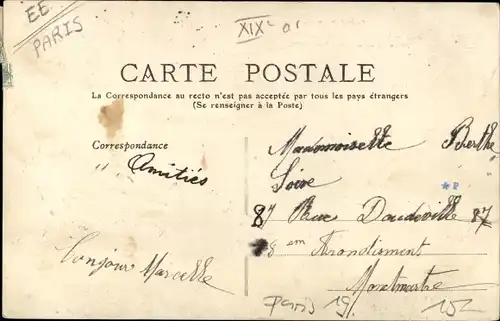 EE
PARIS
XIXe ar
CARTE POSTALE
La Correspondance au recto n'est pas acceptée par tous les pays étrangers
(Se renseigner à la Poste)
Correspondance
" Amitiés
Bonjour Marcelle
Mademoiselle Berthe
Loire
87 Rue Doudeville 87
8 em Arondisment
Montmartre
Paris 19
152